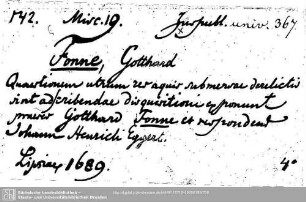 1742. Misc. 19. Jus publ. univ. 367
Fonne, Gotthard
Quaestionem utrum res aquis submersae derelictis
sint adscribendae disquisitioni exponunt
praeses Gotthard Fonne et respondens
Johann Henrich Eggert.
Lipsiae 1689. 4°
Sächsische Landesbibliothek -
Staats- und Universitätsbibliothek Dresden